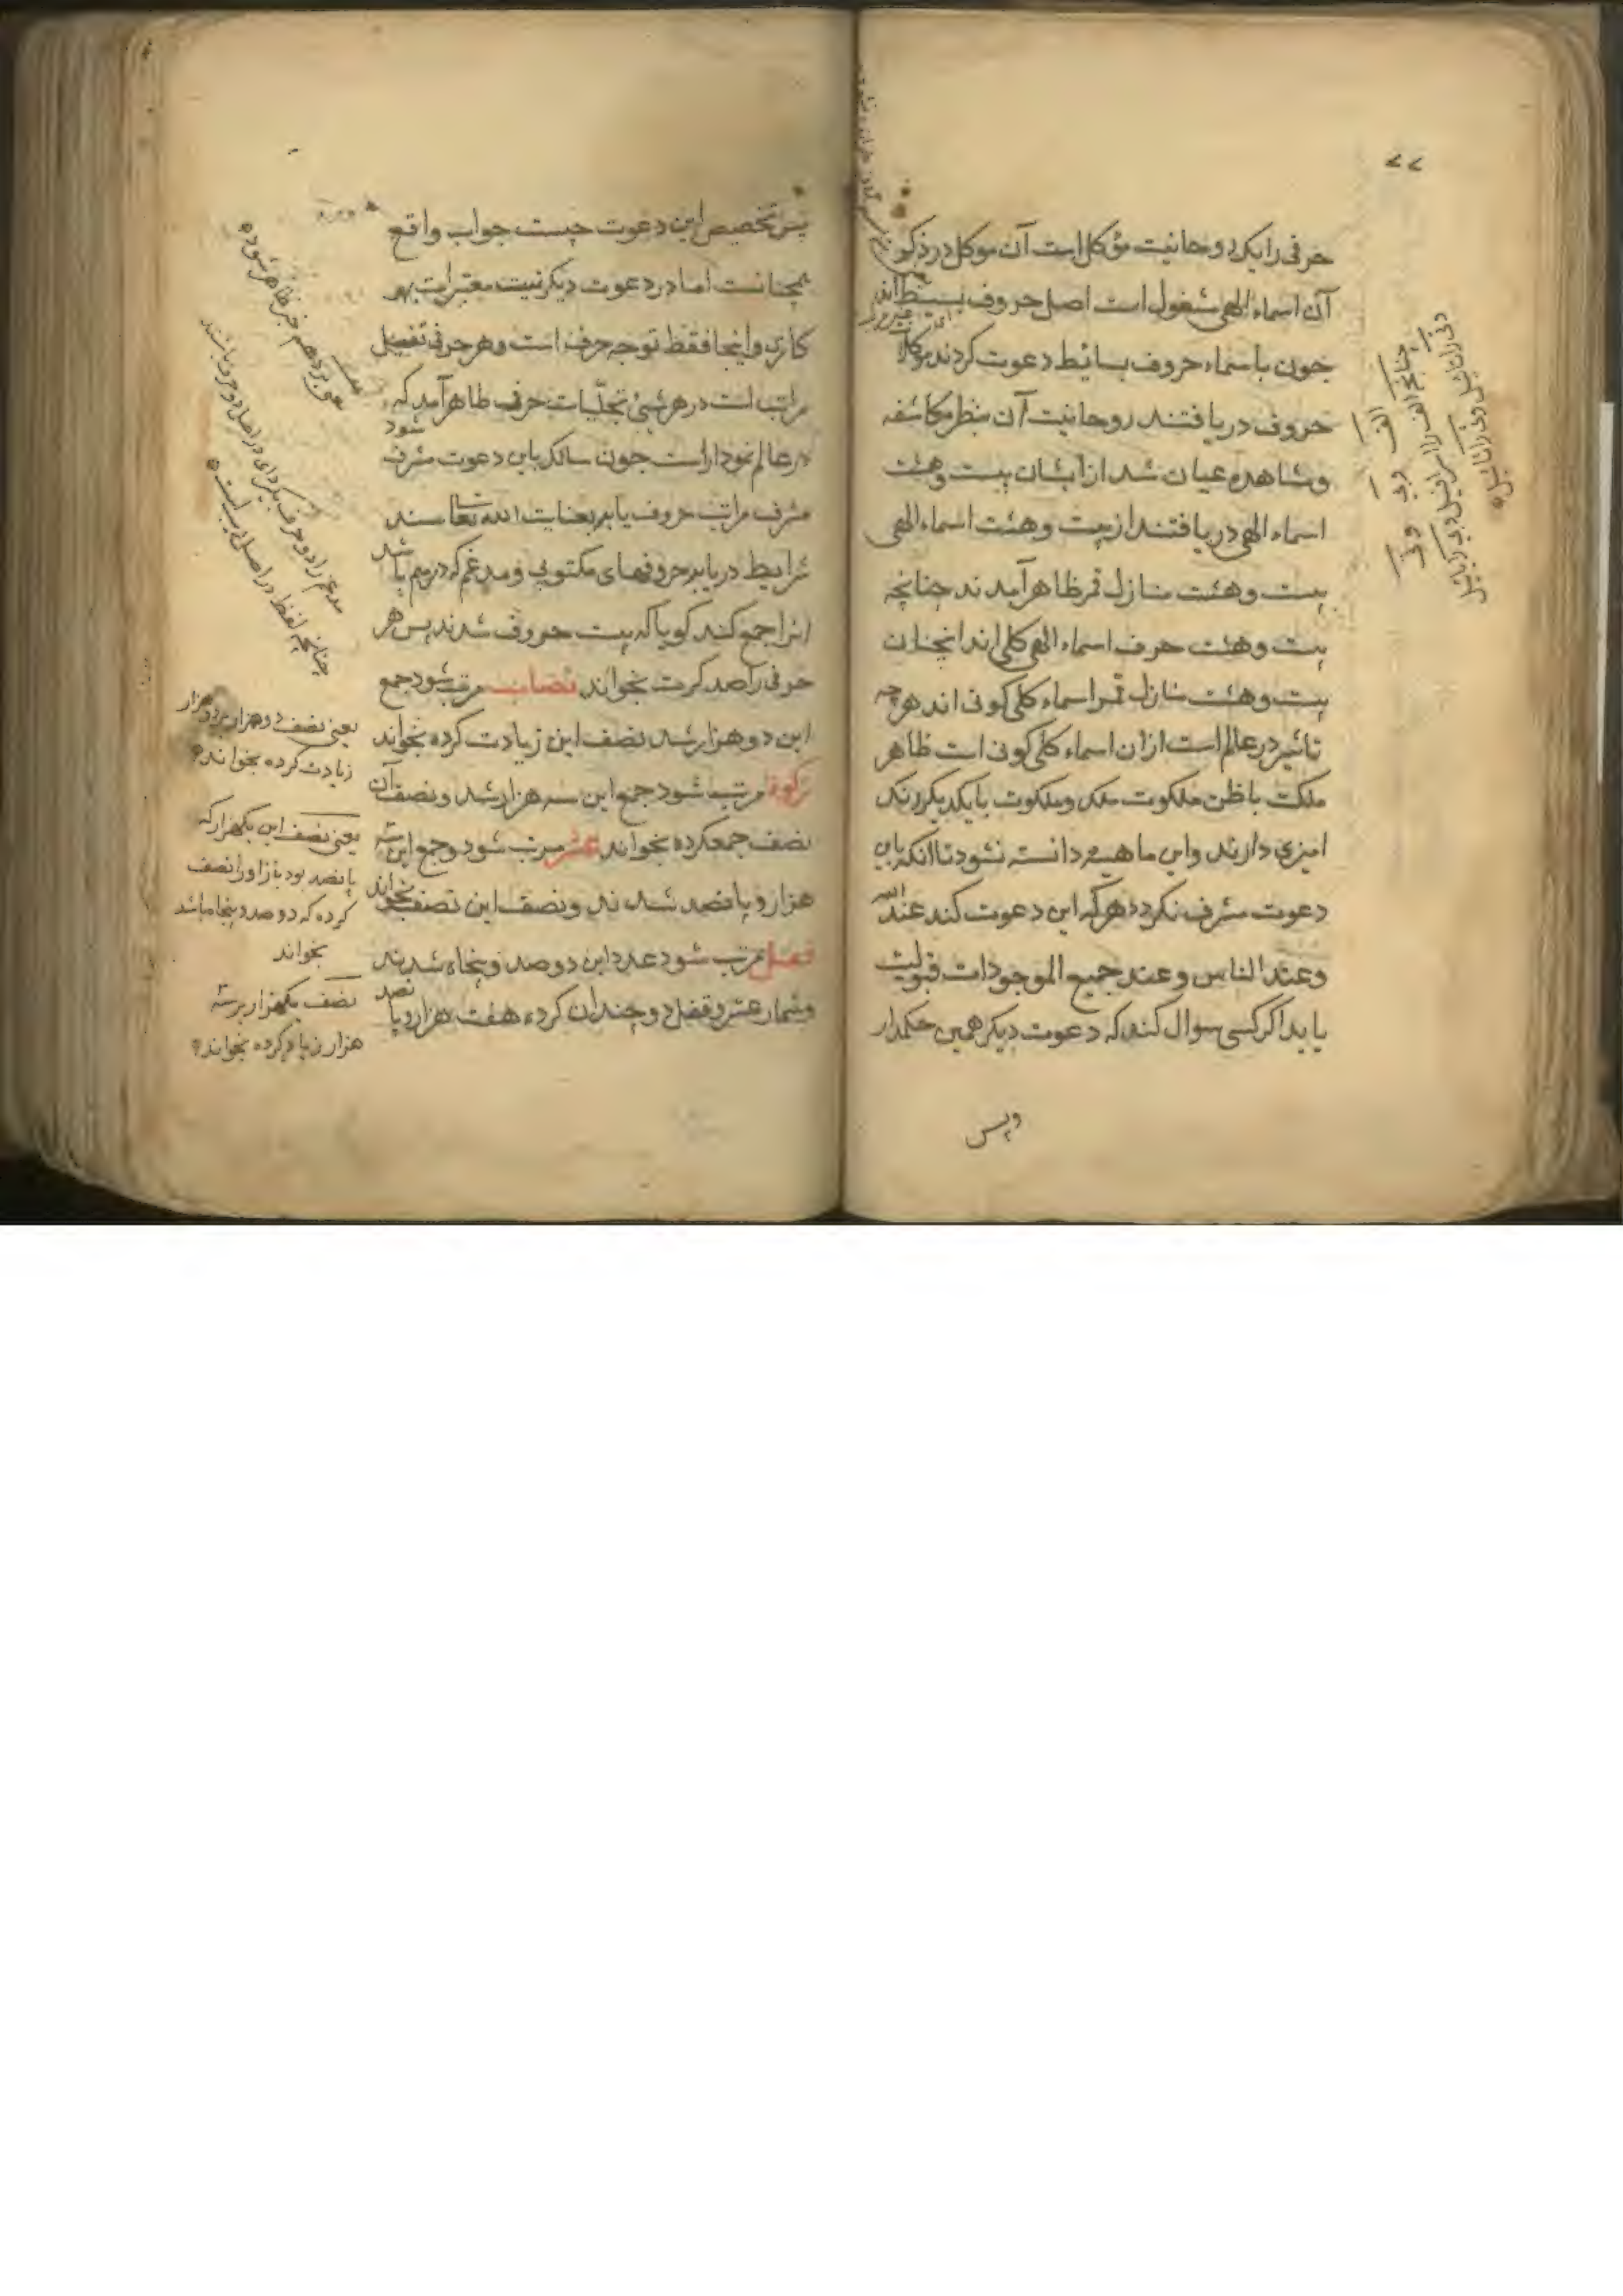 ۷۷
حرفی را یک روحانیت مؤکل است آن موکل در ذکر
آن اسماء الهی مشغول است اصل حروف بسیط اند
چون باسماء حروف بسائط دعوت کردند موکلا
حروف دریافتند روحانیت آن بنظر مکاشفه
ومشاهده عیان شد از ایشان بیست وهشت
اسماء الهی دریافتند از بیست وهشت اسماء الهی
بیست وهشت منازل قمر ظاهر آمدند چنانچه
بیست وهشت حرف اسماء الهی کلی اند انچنان
بیست وهشت منازل قمر اسماء کلی کونی اند هرچه
تاثیر در عالم است ازان اسماء کلی کونی است ظاهر
ملکت باطن ملکوت ملک وملکوت بایکدیکر رنک
امیزی دارند واین ماهیت دانسته نشود تا انکه باین
دعوت مشرف نکردد هرکه این دعوت کند عند الله
وعند الناس وعند جمیع الموجودات قبولیت
یابد اکر کسی سوال کند که دعوت دیکر همین حکم دار
وپس
پس تخصیص این دعوت چیست جواب واقع
همچنانست اما در دعوت دیکر نیت معتبر است بهر
کاری واینجا فقط توجه حرف است وهر حرفی تفصیل
مراتب است در هر شیٔ تجلّیات حرف ظاهر آمد که
در عالم نمودار است چون سالک باین دعوت مشرف شود
مشرف مراتب حروف یابد بعنایت الله تعالی سند
شرایط دریابد حروفهای مکتوبی ومدغم که در اسم باشد
انرا جمع کند کویا که بیست حروف شدند پس هر
حرفی را صد کرت بخواند نصاب مرتب شود جمع
این دو هزار شد نصف این زیادت کرده بخواند
زکوة مرتب شود جمع این سه هزار شد ونصف آن
نصف جمعکرده بخواند عشر مرتب شود وجمع این سه
هزار و پانصد شدند ونصف این نصف بخواند
قفل مرتب شود عدد این دوصد وپنجاه شدند
وشمار عشر وقفل دوچندان کرده هفت هزار وپانصد
مدغم را دو حرف بکیرد ای در اصل دو حرف باشند
چنانچه لفظ در اصل
یعنی نصف دوهزار بر دوهزار
زیادت کرده بخواند
یعنی نصف این یکهزار که
پانصد بود باز اورا نصف
کرده که دوصد وپنجاه باشد
بخواند
نصف یکهزار بر سه
هزار زیاد کرده بخواند